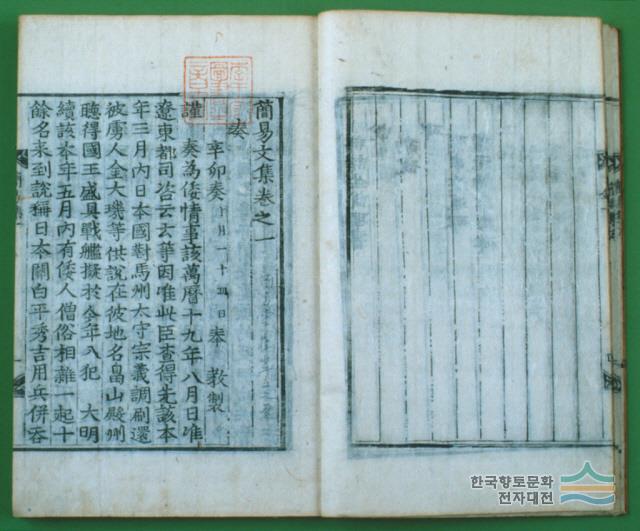 簡易文集卷之一
奏
辛卯奏 十月二十四日奉 教製
謹
奏為倭情事該萬曆十九年八月日准
遼東都司咨云云等因准此臣査得先該本
年三月內日本國對馬州太守宗義調刷還
被虜人金大璣等供說在彼地名畠山殿州
聽得國王盛具戰艦擬於今年入犯 大明
續該本年五月內有倭人僧俗相雜一起十
餘名來到說稱日本關白平秀吉用兵併吞
한국향토문화
전자대전